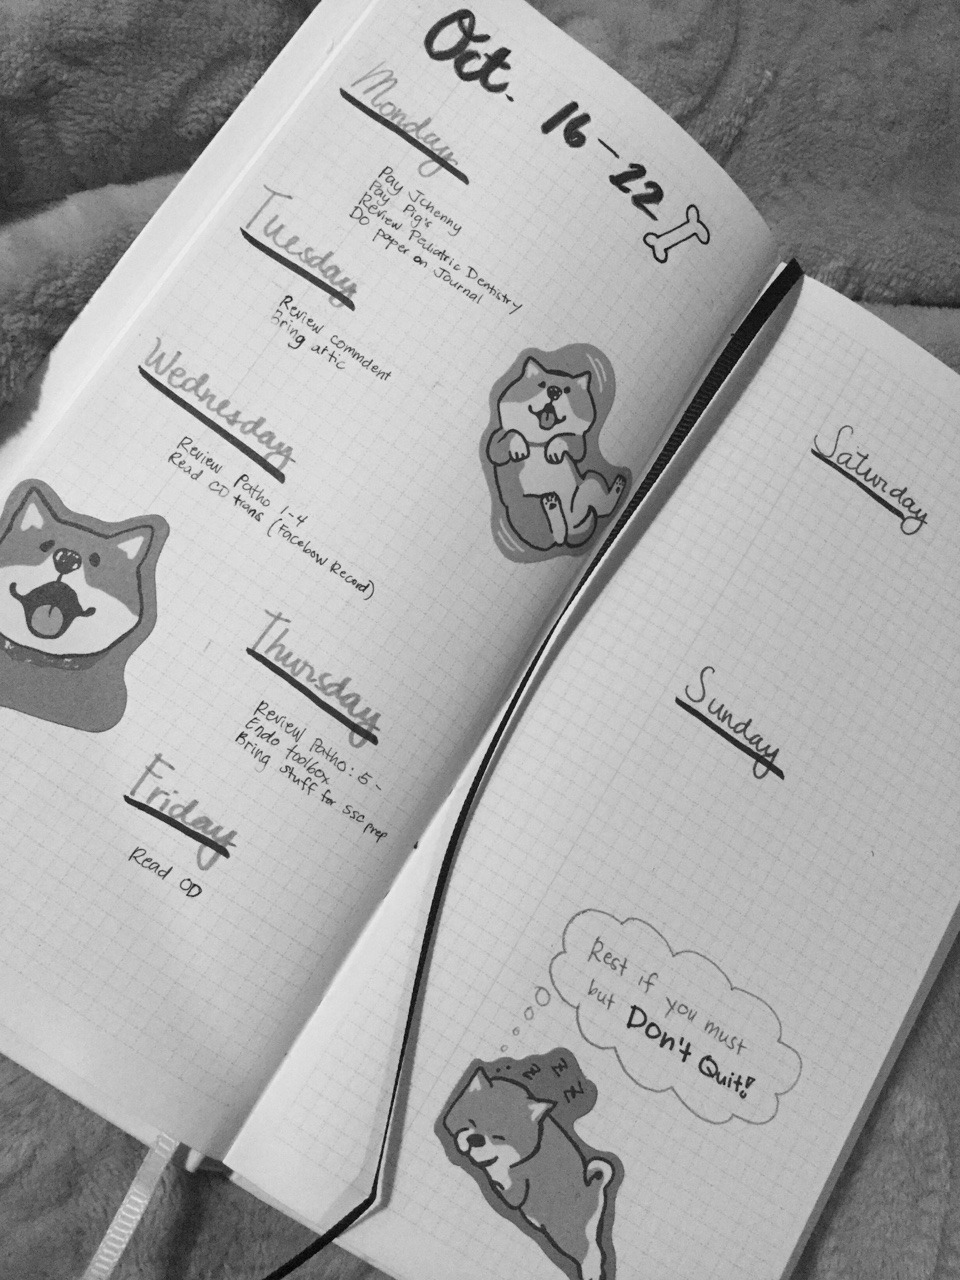 Oct. 16-22
Monday
Pay Jchenny
Pay Pig's
Review Pediatric Dentistry
Do paper on Journal
Tuesday
Review commdent
Bring attic
Wednesday
Review Patho 1-4
Read CD trans (Facebow Record)
Thursday
Review Patho: 5 -
Endo toolbox
Bring stuff for ssc prep
Friday
Read OD
Saturday
Sunday
Rest if you must
but Don't Quit!
z z z z